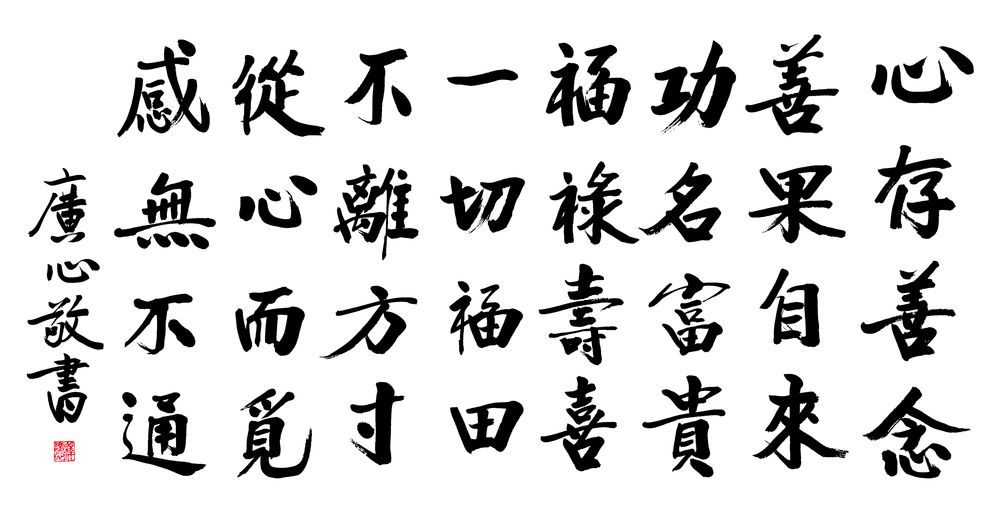 心存善念
善果自來
功名富貴
福祿壽喜
一切福田
不離方寸
從心而覓
感無不通
廣心敬書